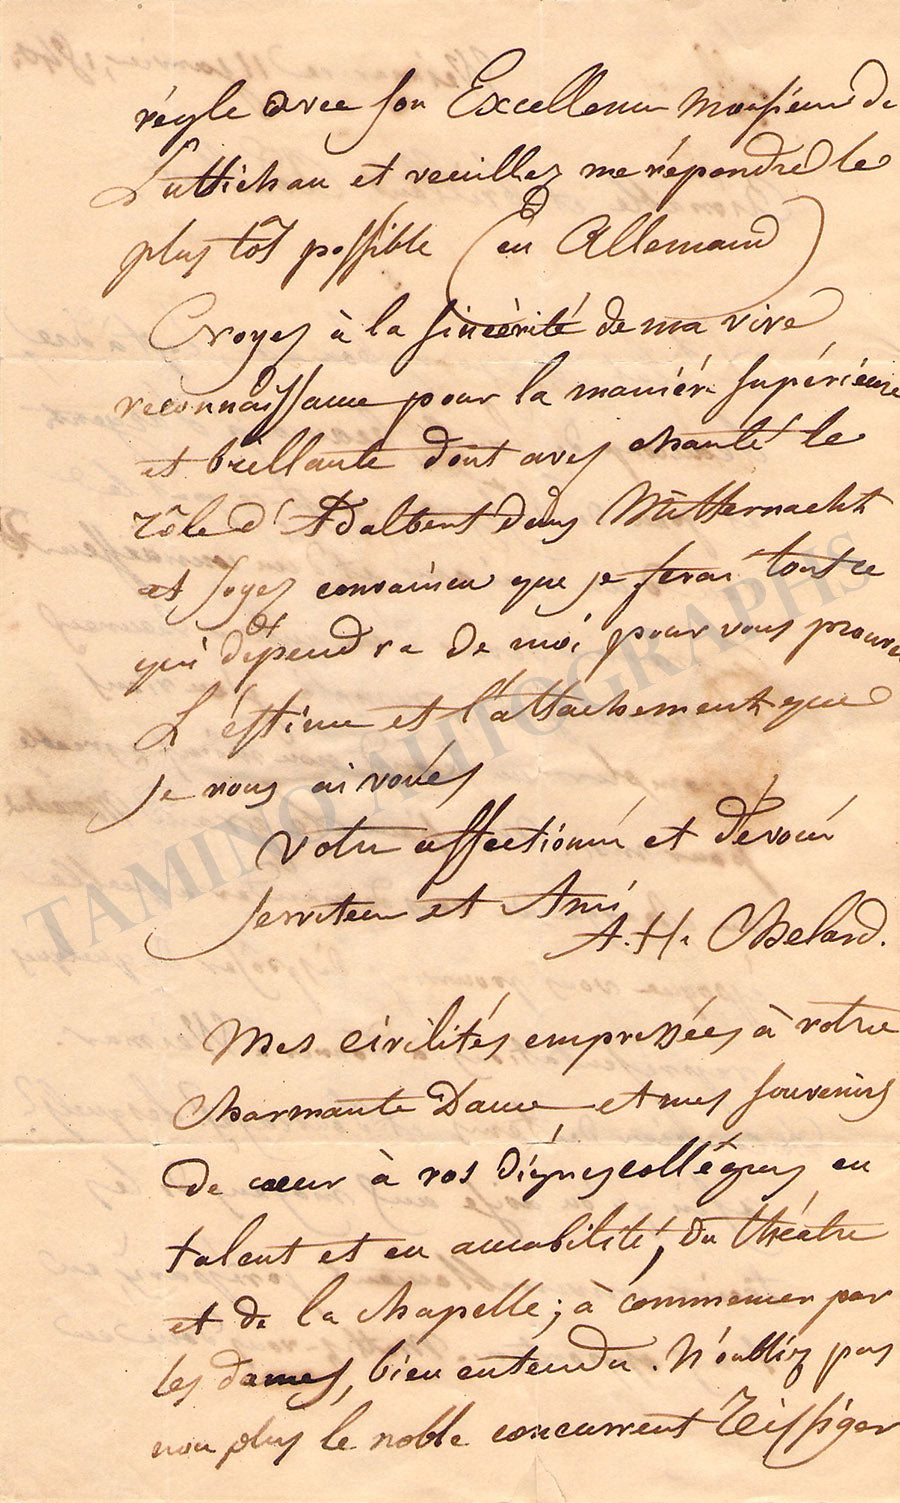 réglé avec son Excellence Monsieur de
Luttichau et veuillez me répondre le
plus tôt possible (en Allemand)
Croyez à la sincérité de ma vive
reconnaissance pour la manière supérieure
et brillante dont avez chanté le
rôle d'Adalbert dans Mitternacht
et soyez convaincu que je ferai tout ce
qui dépendra de moi pour vous prouver
L'éstime et l'attachement que
je vous ai voués
Votre affectionné et dévoué
serviteur et Ami
A. H. Chelard.
Mes civilités empressées à votre
charmante Dame et mes souvenirs
de cœur à vos dignes collègues en
talent et en amabilité, du théâtre
et de la chapelle; à commencer par
les dames, bien entendu. N'oubliez pas
non plus le noble concurrent Reissiger
TAMINO AUTOGRAPHS